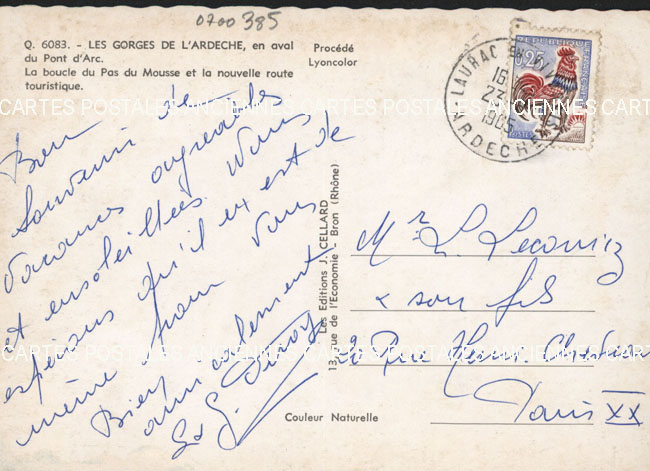 0700385
Q. 6083. - LES GORGES DE L'ARDECHE, en aval
du Pont d'Arc.
La boucle du Pas du Mousse et la nouvelle route
touristique.
Procédé
Lyoncolor
LAURAC EN
16
23
1965
ARDECHE
REPUBLIQUE FRANCAISE
0,25
POSTES
CARTES POSTALES ANCIENNES CARTES POSTALES ANCIENNES CARTES
Bon
souvenir de
vacances agréables
et ensoleillées. Nous
espérons qu'il en est de
même pour vous
Bien
amicalement
Les Editions J. CELLARD
13, rue de l'Economie - Bron (Rhône)
Mr L.
& son fils
2 Rue Henri
Paris XX
CARTES POSTALES ANCIENNES CARTES POSTALES ANCIENNES CARTES
Couleur Naturelle